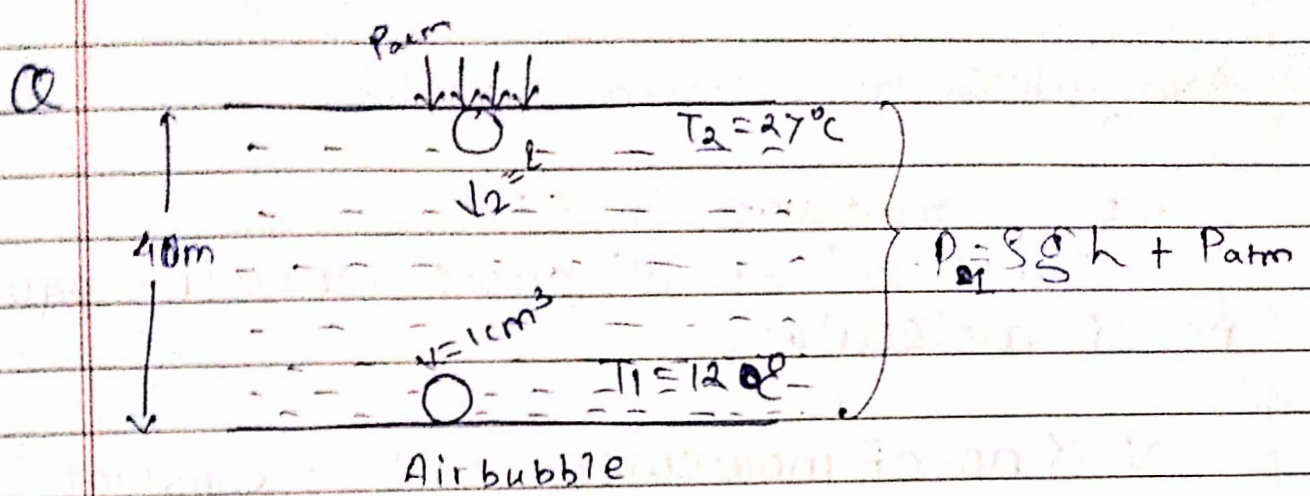 Q
Patm
T2 = 27°C
V2 = ?
40m
P1 = ρgh + Patm
V = 1cm³
T1 = 12°C
Airbubble